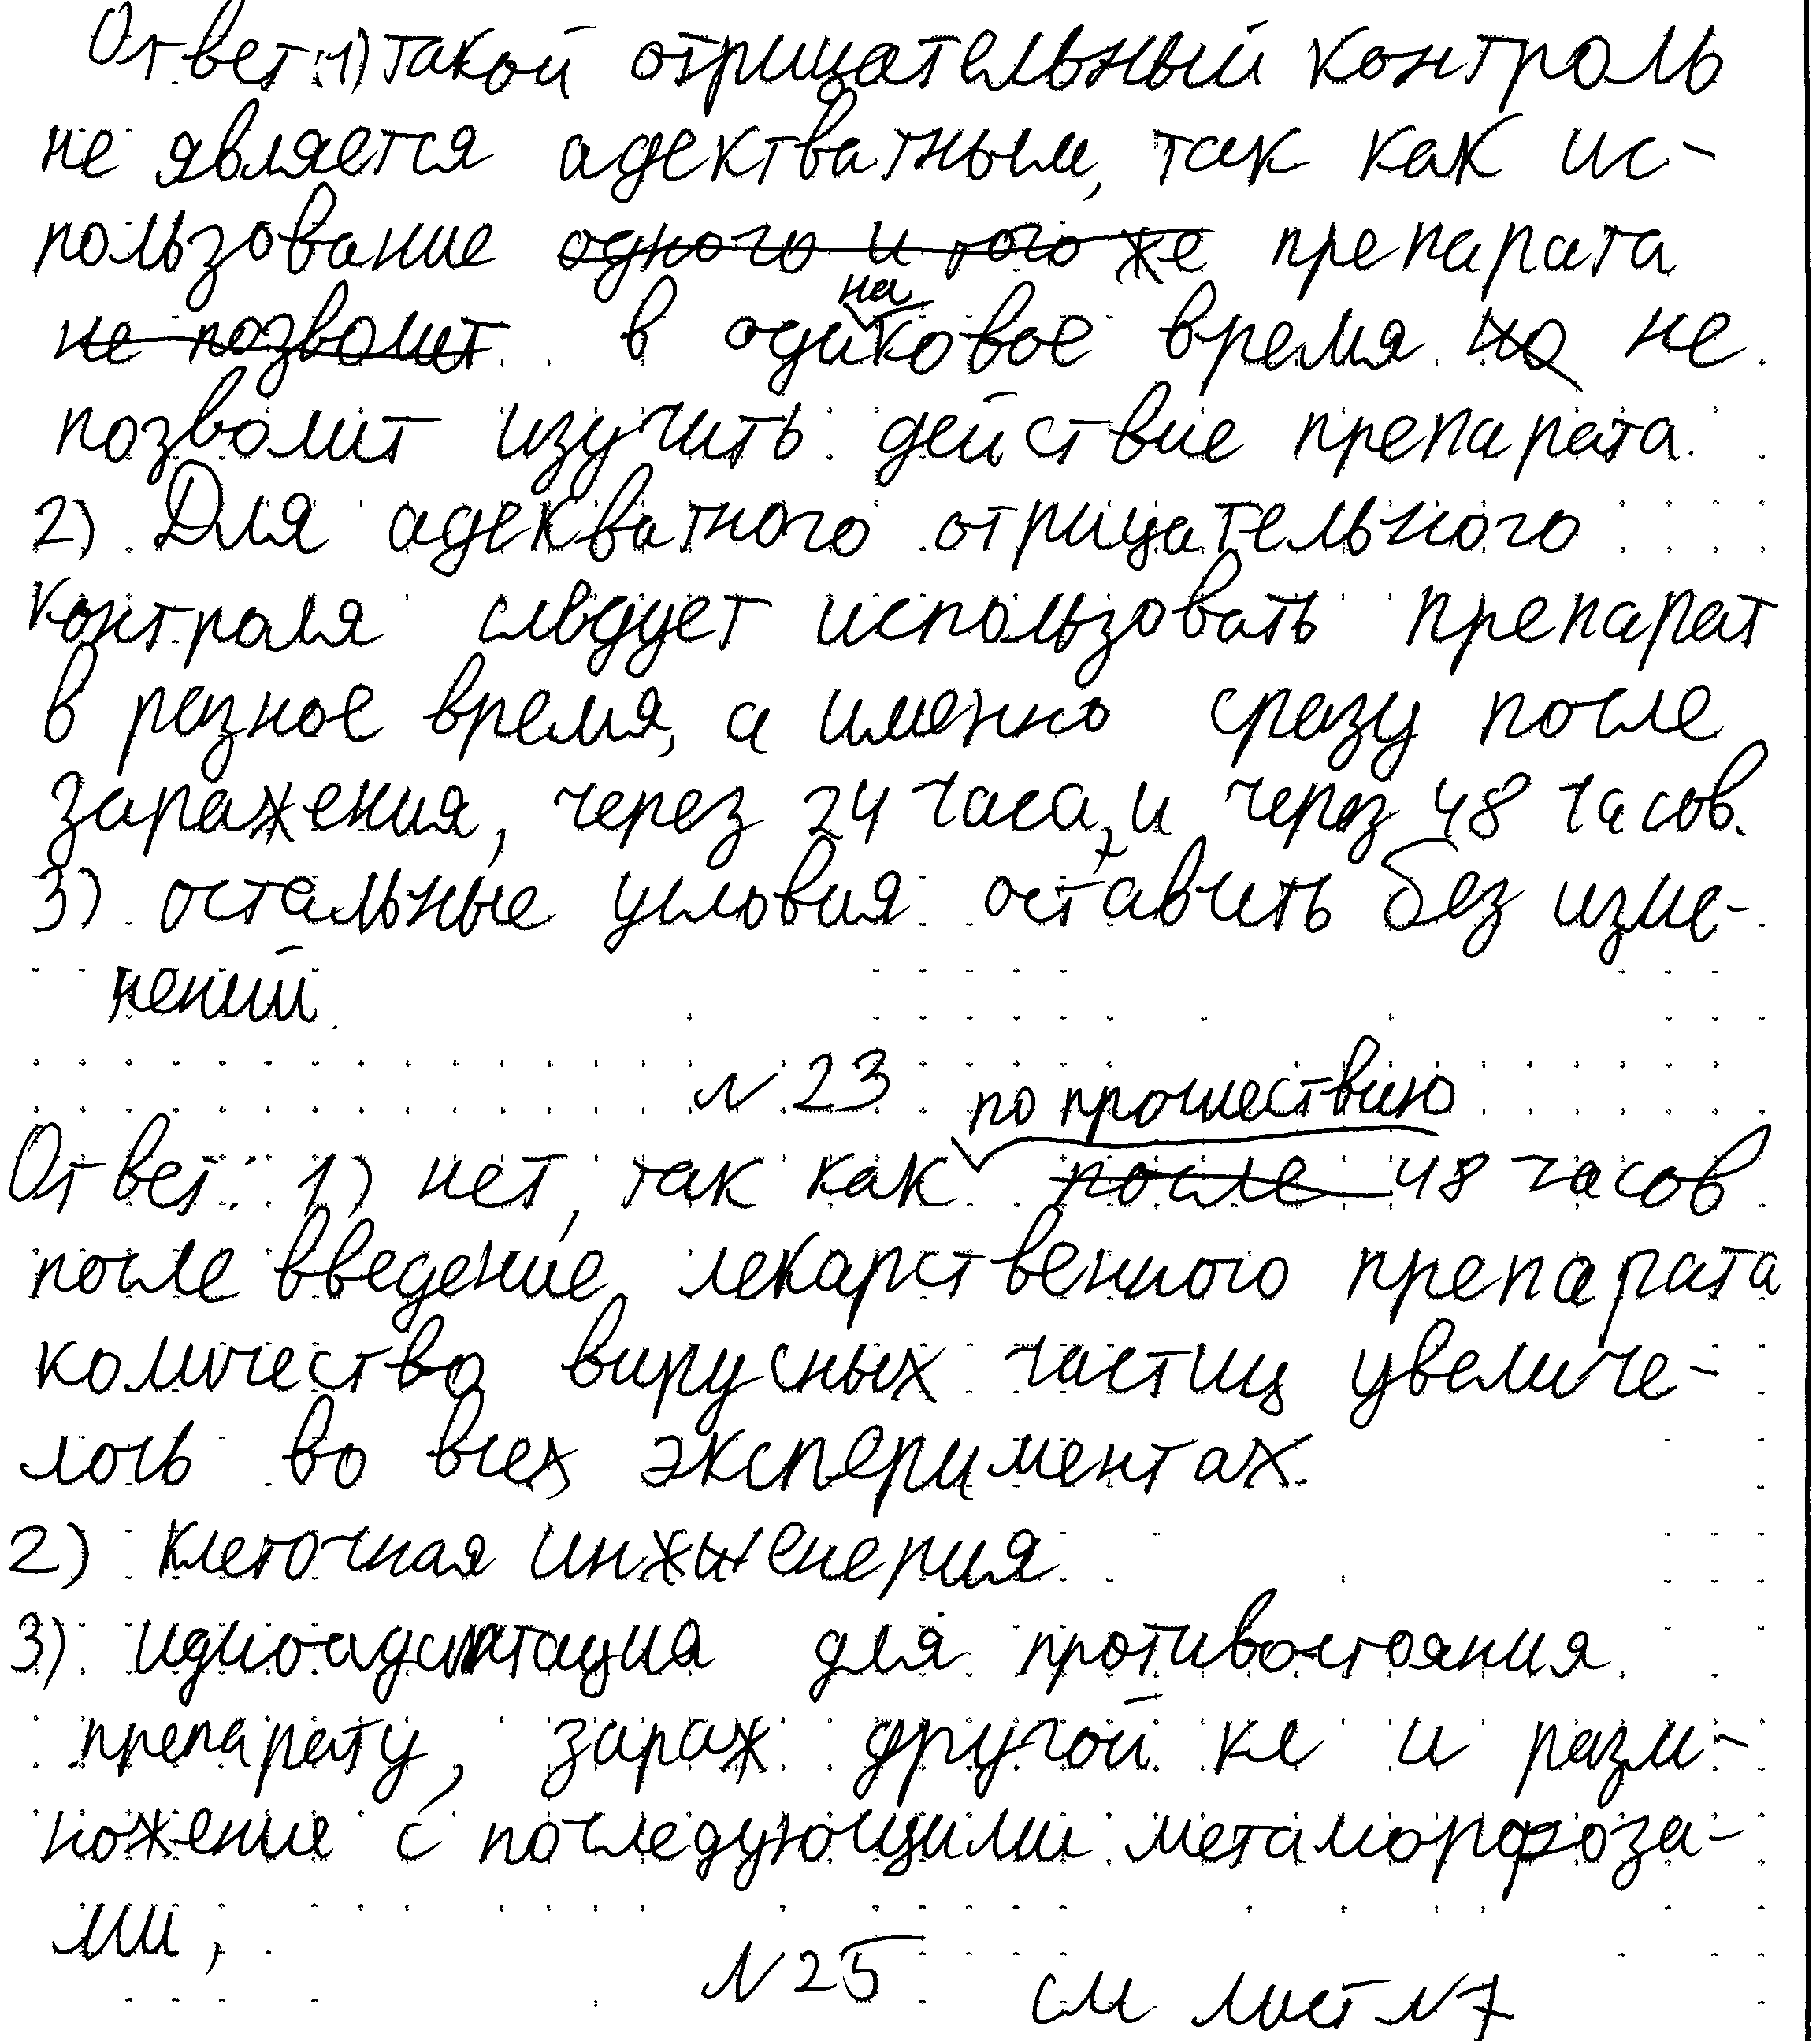 Ответ: 1) такой отрицательный контроль
не является адектватным, так как ис-
пользование одного и того же препарата
не позволит в одинаковое время но не
позволит изучить действие препарата.
2) Для адекватного отрицательного
контроля следует использовать препарат
в разное время, а именно сразу после
заражения, через 24 часа, и через 48 часов.
3) остальные условия оставить без изме-
нений.
N 23
по прошествию
Ответ: 1) нет, так как после 48 часов
после введение лекарственного препарата
количество вирусных частиц увеличе-
лось во всех экспериментах.
2) клеточная инженерия
3) идиоадаптация для противостояния
препарату, зараж другой кл и разм-
ножение с последующими метаморфоза-
ми;
N 25 см лист N 7